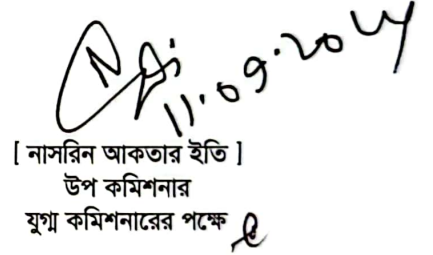 11.09.2024
[ নাসরিন আকতার ইতি ]
উপ কমিশনার
যুগ্ম কমিশনারের পক্ষে